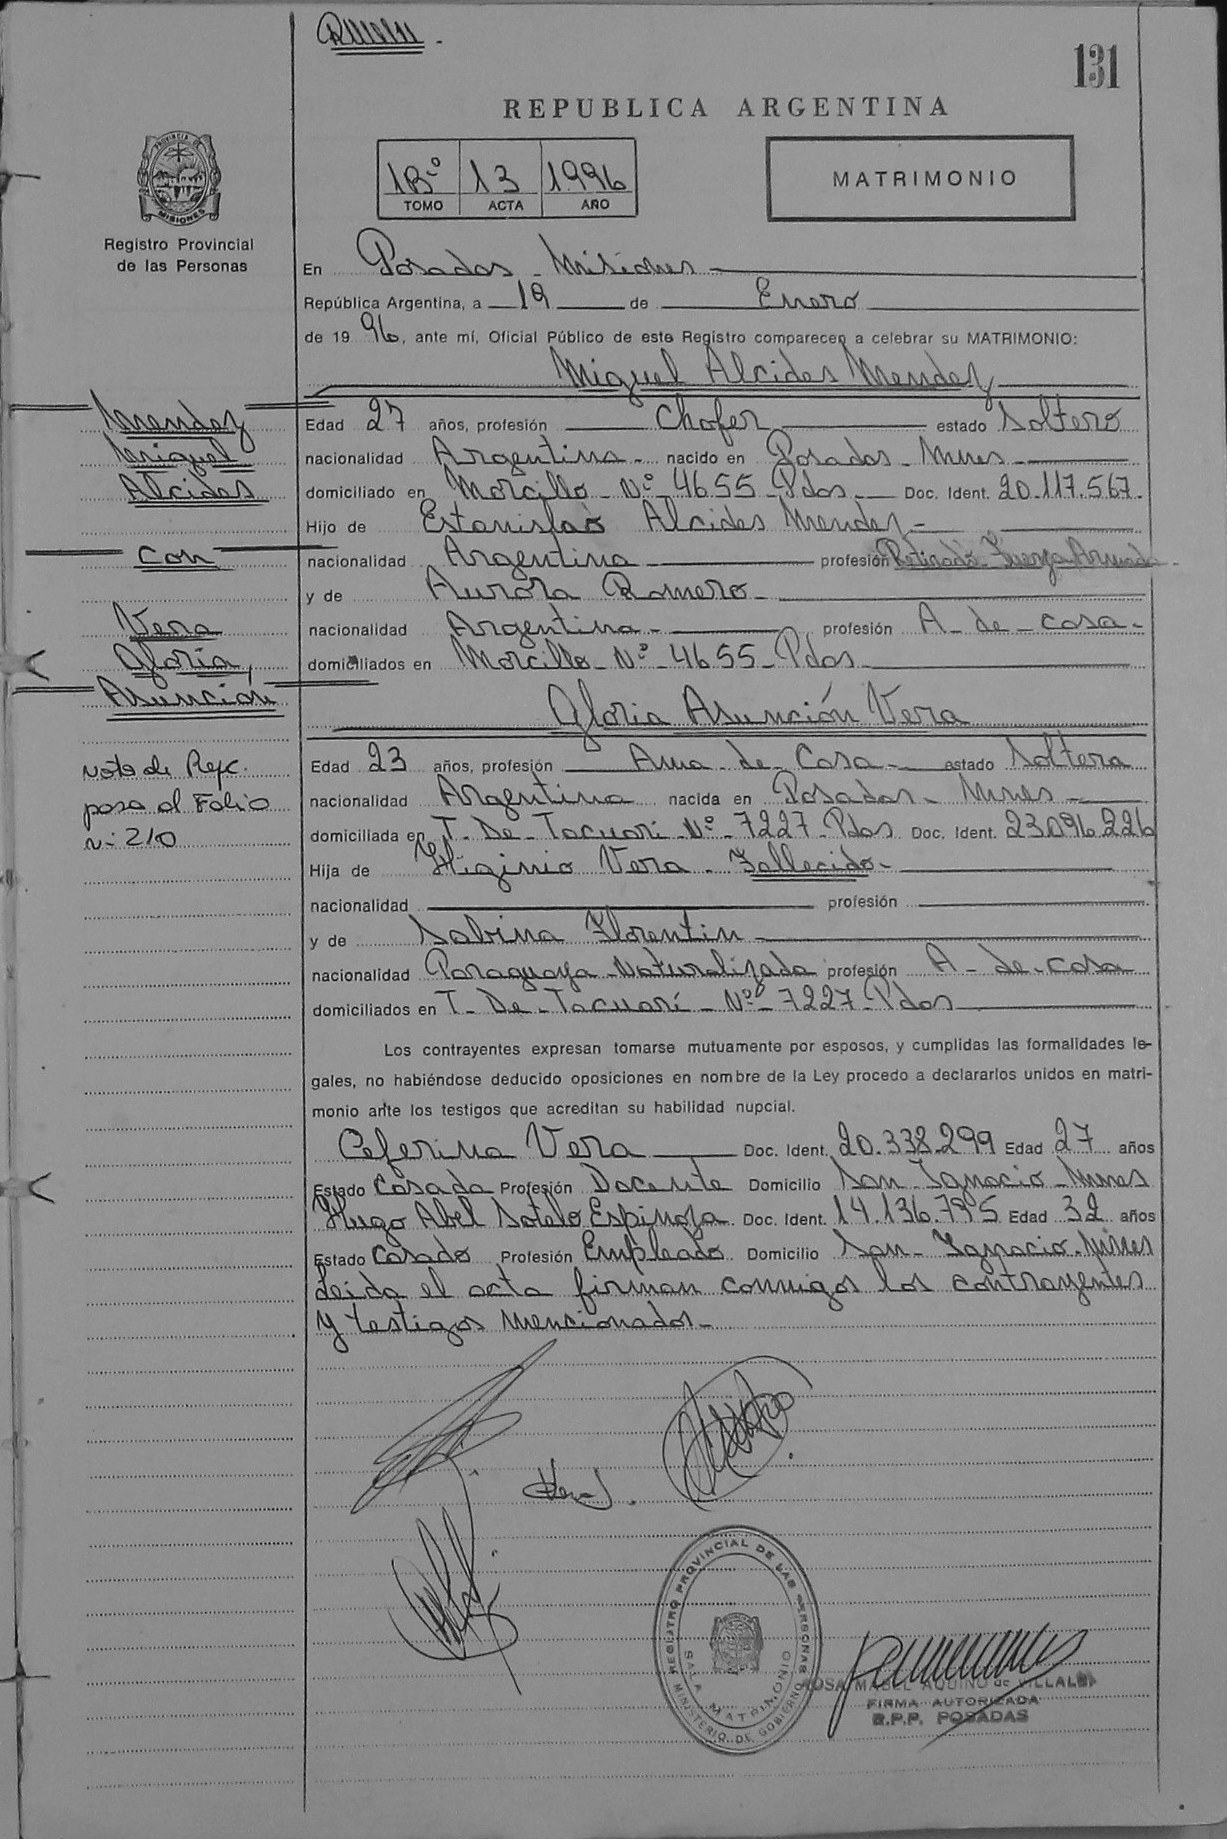 131
REPUBLICA ARGENTINA
PROVINCIA DE MISIONES
Registro Provincial
de las Personas
1Bº 13 1996
TOMO ACTA AÑO
MATRIMONIO
En Posadas - Misiones
República Argentina, a 19 de Enero
de 19 96, ante mí, Oficial Público de este Registro comparecen a celebrar su MATRIMONIO:
Miguel Alcides Mendez
Mendez
Miguel
Alcides
con
Vera
Gloria,
Asunción
Nota de Refc.
pasa al Folio
Nº 210
Edad 27 años, profesión Chofer estado Soltero
nacionalidad Argentina - nacido en Posadas - Mnes -
domiciliado en Morcillo - Nº - 4655 - Pdas - Doc. Ident. 20.117.567.
Hijo de Estanislao Alcides Mendez -
nacionalidad Argentina profesión Retirado Fuerza Armada -
y de Aurora Romero -
nacionalidad Argentina - profesión A - de - casa -
domiciliados en Morcillo - Nº - 4655 - Pdas
Gloria Asunción Vera
Edad 23 años, profesión Ama - de - Casa - estado Soltera
nacionalidad Argentina nacida en Posadas - Mnes -
domiciliada en T. De - Tacuarí - Nº - 7227 - Pdas Doc. Ident. 23.096.226
Hija de Higinio Vera - Fallecido -
nacionalidad profesión
y de Sabina Florentin -
nacionalidad Paraguaya - Naturalizada profesión A - de - casa
domiciliados en T - De - Tacuarí - Nº - 7227 - Pdas
Los contrayentes expresan tomarse mutuamente por esposos, y cumplidas las formalidades le-
gales, no habiéndose deducido oposiciones en nombre de la Ley procedo a declararlos unidos en matri-
monio ante los testigos que acreditan su habilidad nupcial.
Ceferina Vera Doc. Ident. 20.338.299 Edad 27 años
Estado Casada Profesión Docente Domicilio San Ignacio - Mnes
Hugo Abel Sotelo Espinoza Doc. Ident. 14.136.795 Edad 32 años
Estado Casado Profesión Empleado Domicilio San - Ignacio - Mnes
Leida el acta firman conmigo los contrayentes
y testigos mencionados -
REGISTRO PROVINCIAL DE LAS PERSONAS
SALA MATRIMONIO
MINISTERIO DE GOBIERNO
ROSA MABEL AQUINO de VILLALBA
FIRMA AUTORIZADA
R.P.P. POSADAS